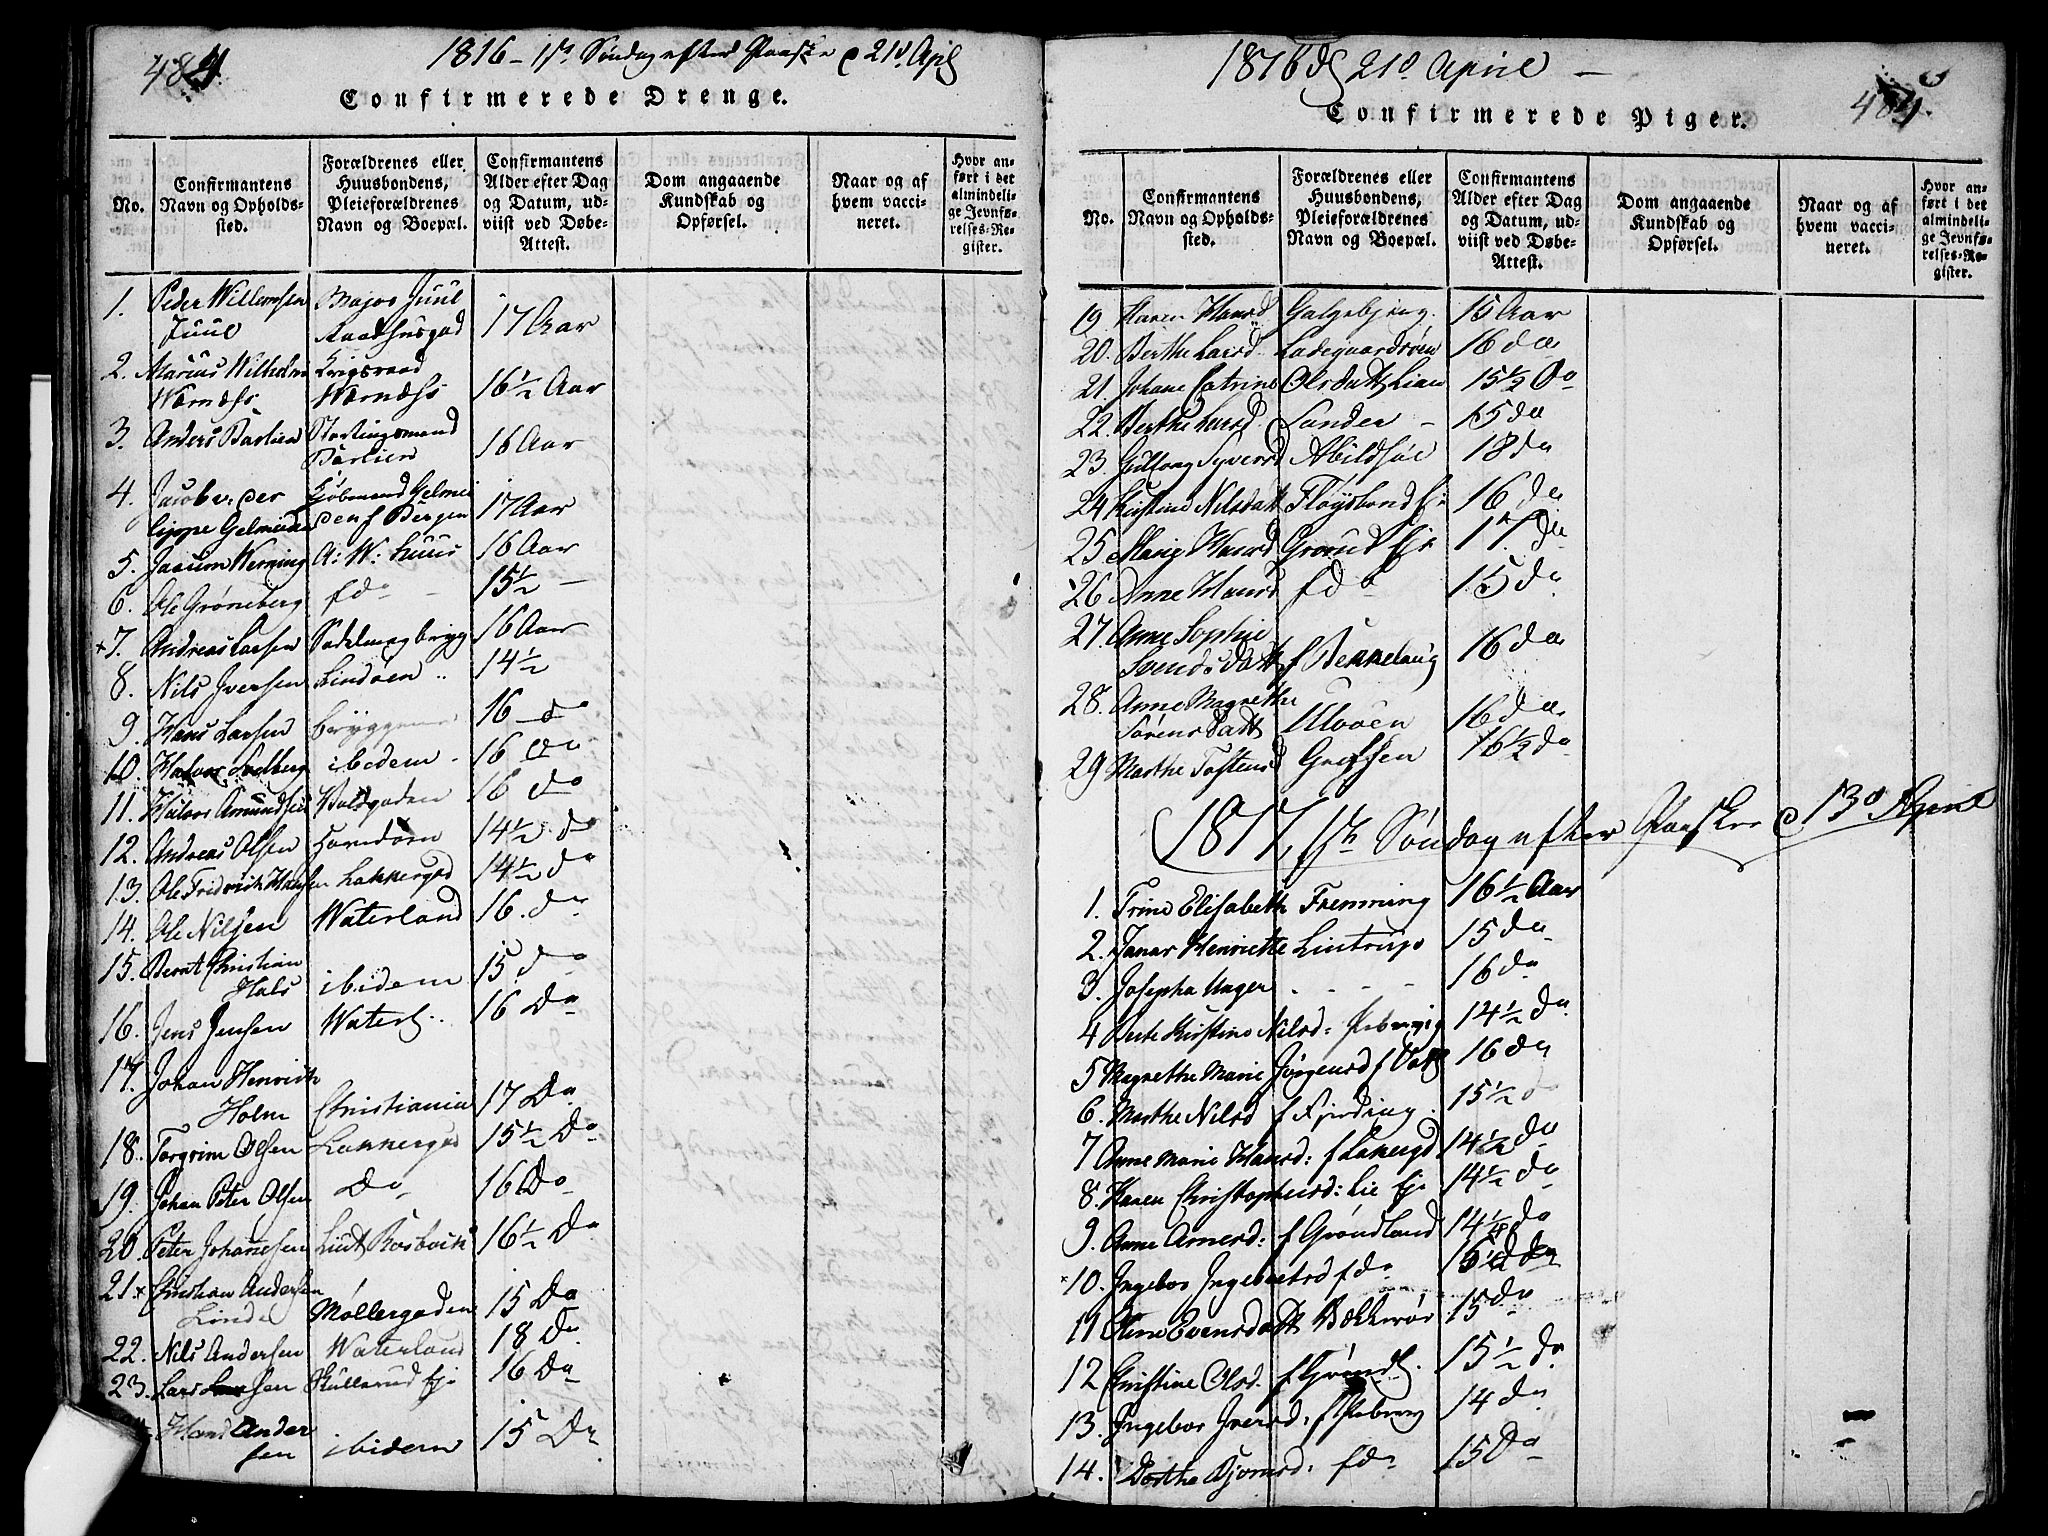 1816 - 1ste Søndag efter Paaske d 21d Apl
Confirmerede Drenge.
No.
Confirmantens Navn og Opholds-sted.
Forældrenes eller Huusbondens, Pleieforældrenes Navn og Boepæl.
Confirmantens Alder efter Dag og Datum, ud-viist ved Døbe-Attest.
Dom angaaende Kundskab og Opførsel.
Naar og af hvem vacci-neret.
Hvor an-ført i det almindeli-ge Jevnfø-relses-Re-gister.
1. Peder Willemsen Juul Major Juul Raadhusgad 17 Aar
2. Marius Wilhelm Wærness Krigsraad Wærness 16 1/2 Aar
3. Anders Barlien Stortingsmand Barlien 16 Aar
4. Jacob v: der Lippe Gelmuiden Kjøbmand Gelmuiden f Bergen 17 Aar
5. Werning A: W: huus 16 Aar
6. Ole Grøneberg fdo 15 1/2 -
+7. Andreas Larsen Sadelmagbrygg 16 Aar
8. Nils Iversen Lindøen 14 1/2
9. Hans Larsen bryggene 16 - do
10. Halvor Sølberg ibidem - 16 do
11. Halvor Amundsen Voldgaden 16 do
12. Andreas Olsen 14 1/2 do
13. Ole Fridrich Hansen Lakkergad 14 1/2 do
14. Ole Nilsen Waterland 16. do
15. Bernt Christian Hals ibidem 15 do
16. Jens Jensen Waterl. 16 Do
17. Johan Henrich Holm Christiania 17 Do
18. Torgrim Olsen Lakkergad 15 1/2 Do
19. Johan Peter Olsen Do 16 Do
20. Peter Johannesen Liut Rosbach 16 1/2 Do
21+ Christian Andersen Linde Møllergaden 15 Do
22. Nils Andersen Waterland 18 Do
23. Lars Larsen Skullerud Eje 16 Do
Hans Andersen ibidem 15 Do
1816 d 21d April -
Confirmerede Piger.
No.
Confirmantens Navn og Opholds-sted.
Forældrenes eller Huusbondens, Pleieforældrenes Navn og Boepæl.
Confirmantens Alder efter Dag og Datum, ud-viist ved Døbe-Attest.
Dom angaaende Kundskab og Opførsel.
Naar og af hvem vacci-neret.
Hvor an-ført i det almindeli-ge Jevnfø-relses-Re-gister.
19 Karen Hansd Galgebjerg. 15 Aar
20. Berthe Larsd. Ladegaardsøen 16 do
21. Johane Catrine Olsdatt Lian 15 1/2 Do
22. Berthe Larsd. Sander - 15 do
23. Gullaug Syversd Abildsøe 18 do
24 Kirstine Nilsdatt Fløysbond Ej: 16 do
25 Marie Hansd Grorud Eje 17 do
26 Anne Hansd fdo 15 do
27. Anne Sophie Svendsdatt f Bekkelaug 16 do
28. Anne Magrethe Sørensdatt Ulvøen 16 do
29 Marthe Tostensd Grefsen 16 1/2 do
1817, 1ste Søndag efter Paaske d 13d April
1. Trine Elisabeth Fremming 16 1/2 Aar
2. Janar Henriette Lintrup 15 do
3. Josepha Unger - - - - 16 do
4 Berte Kirstine Nilsd: 14 1/2 do
5 Magrethe Marie Jørgensd 16 do
6. Marthe Nilsd f Fjerding 15 1/2 d
7 Anne Marie Hansd: f Lakergd 14 1/2 do
8. Karen Christophersd: Lie Eje 14 1/2 do
9. Anne Arnesd: f Grøndland 14 1/2 do
+10. Ingebor Ingebretsd fdo
11 Oline Evensdatt Bækkerør 15 do
12 Christine Olsd. f Grøndl. 15 1/2 do
13. Ingebor Iversd: 14 do
14. Dorthe Bjørnsd: fdo 15 Do